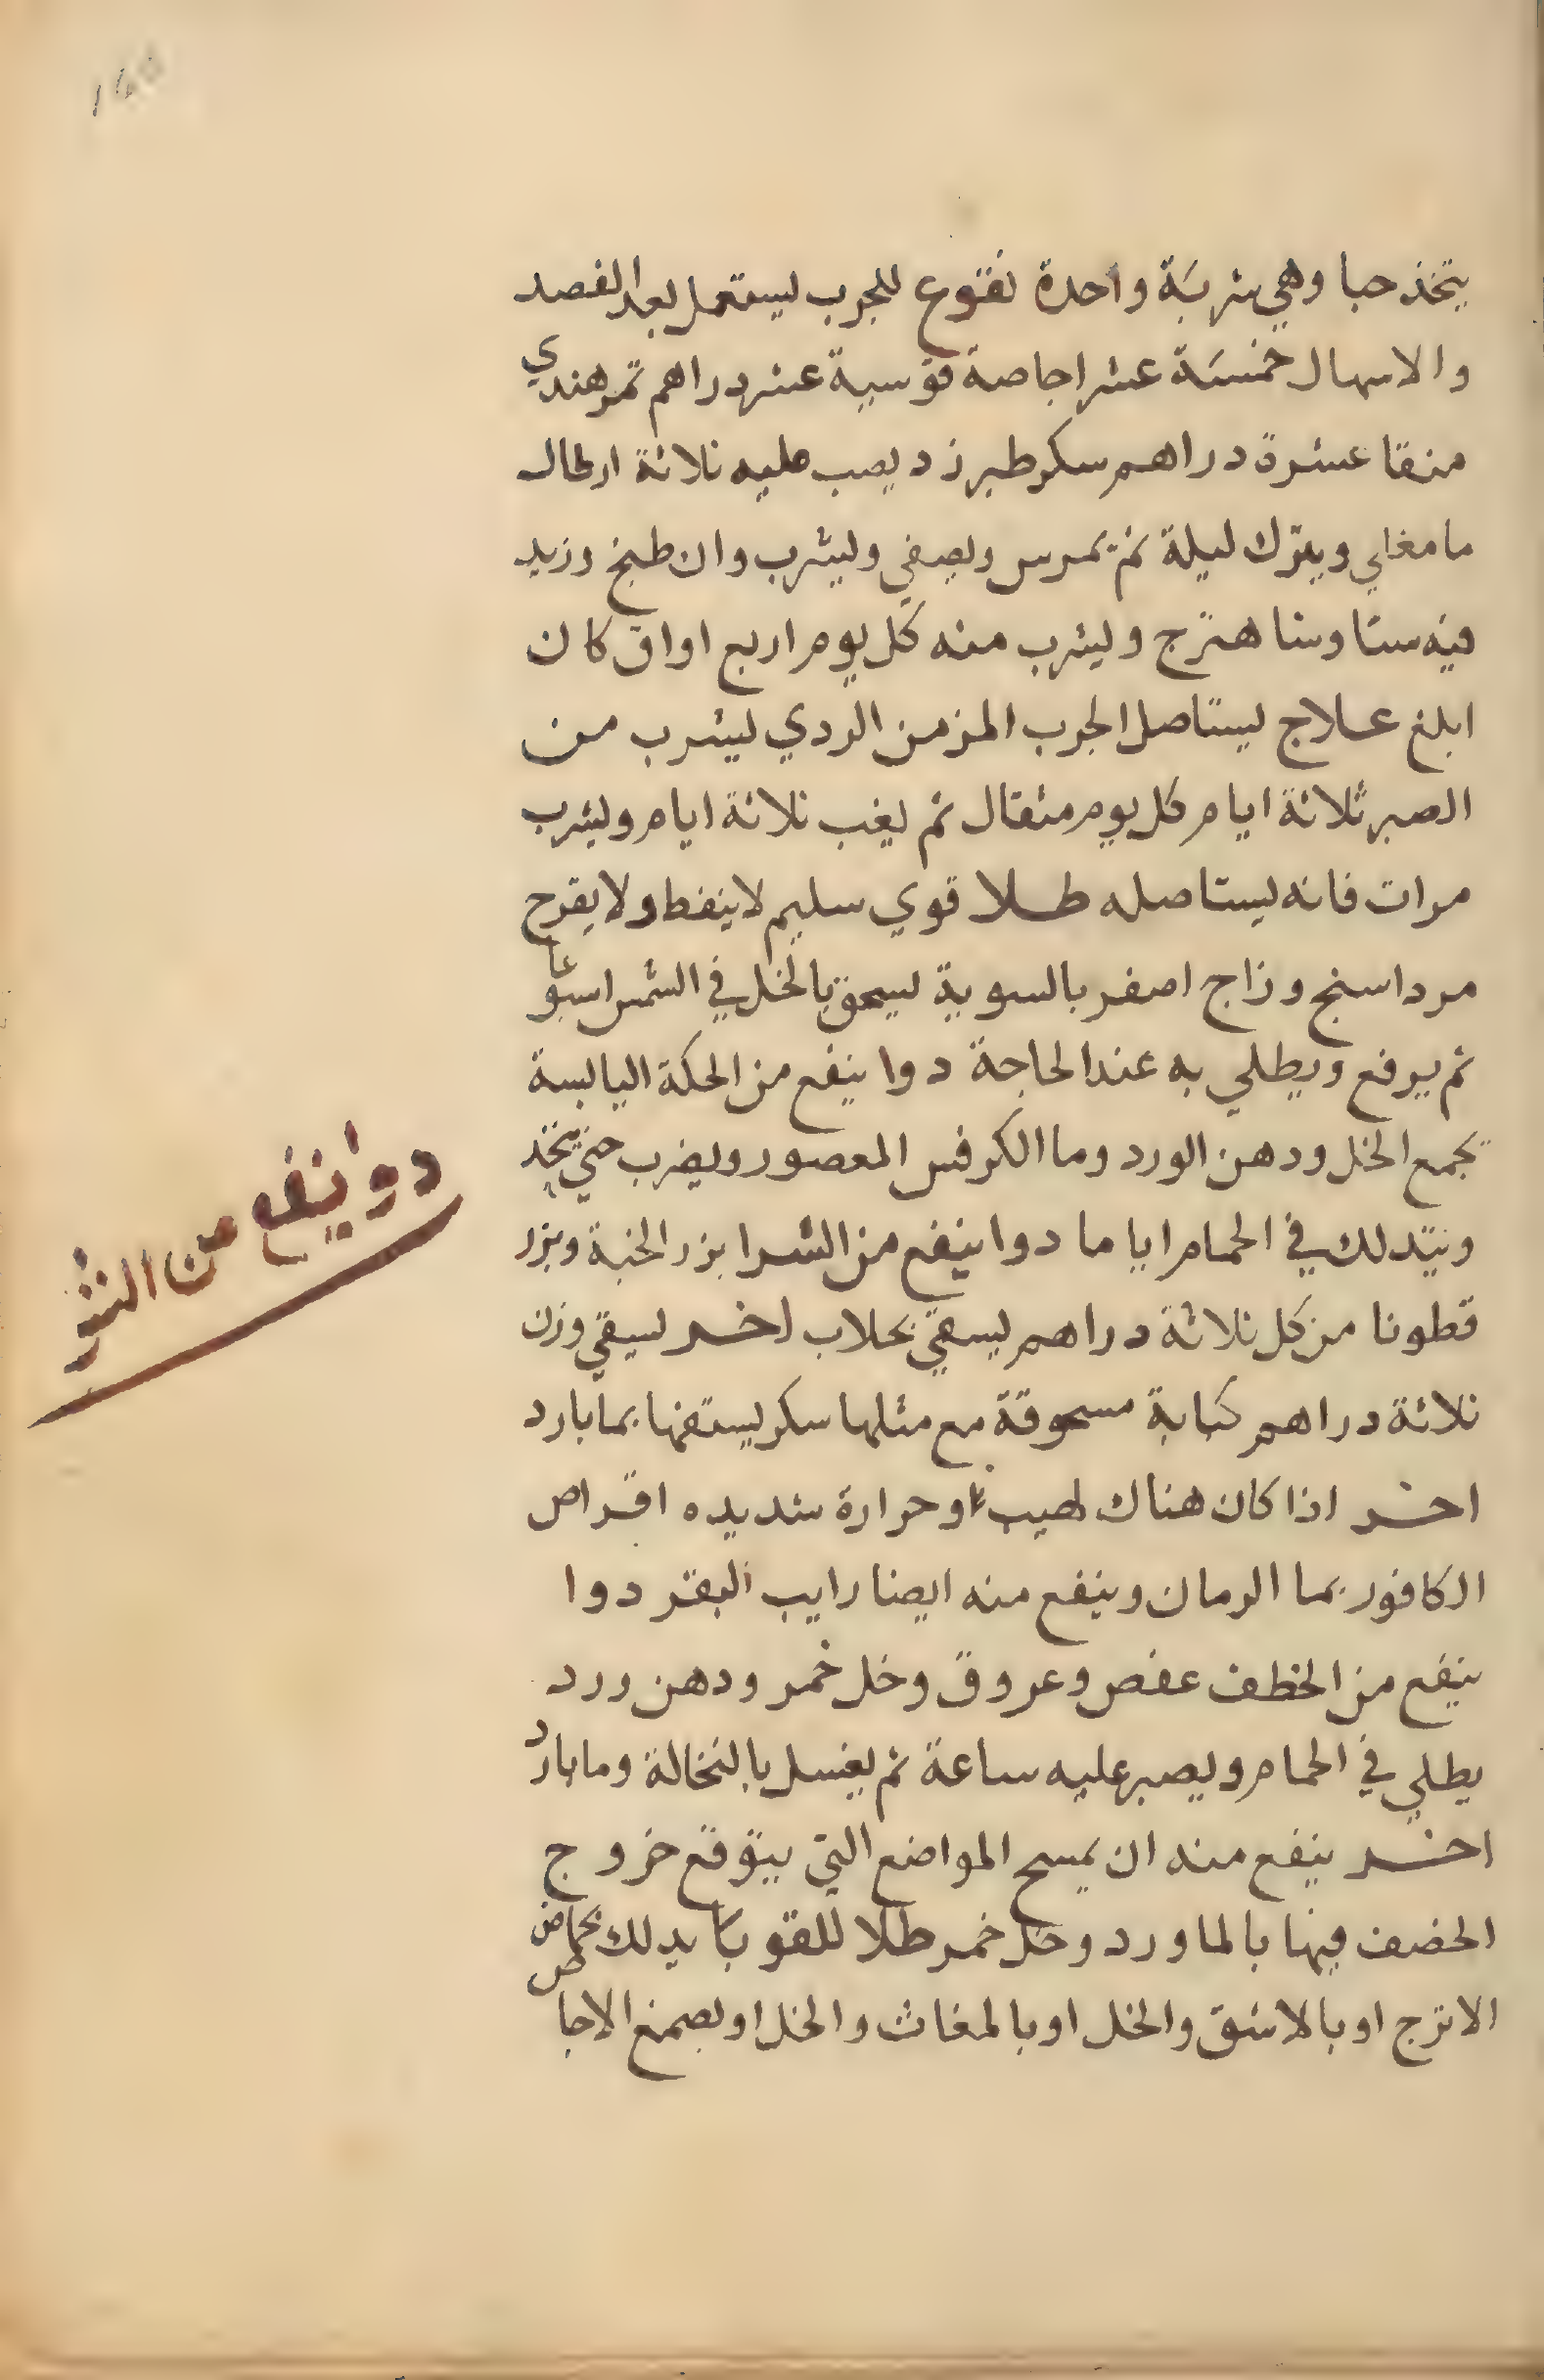 يتخذ حبا وهي شربة واحدة نقوع للجرب يستعمل بعد الفصد
والاسهال خمسة عشر اجاصة قوسية عشر دراهم تمر هندي
منقا عشرة دراهم سكر طبرزد يصب عليه ثلاثة ارطال
ما مغلي ويترك ليلة ثم يمرس ويصفي ويشرب وان طبخ وزيد
فيه سنا وشاهترج ويشرب منه كل يوم اربع اواق كان
ابلغ علاج يستاصل الجرب المزمن الردي يشرب من
الصبر ثلاثة ايام كل يوم مثقال ثم يغب ثلاثة ايام ويشرب
مرات فانه يستاصله طلا قوي سليم لا ينفط ولا يقرح
مرداسنج وزاج اصفر بالسوية يسحق بالخل في الشمس اسبوعا
ثم يرفع ويطلي به عند الحاجة دوا ينفع من الحكة اليابسة
تجمع الخل ودهن الورد وما الكرفس المعصور ويضرب حتي يتخذ
ويتدلك في الحمام اياما دوا ينفع من الشرا بزر الخبة وبزر
قطونا من كل ثلاثة دراهم يسقي بجلاب اخر يسقي وزن
ثلاثة دراهم كبابة مسحوقة مع مثلها سكر يستفها بما بارد
اخر اذا كان هناك لهيب او حرارة شديده اقراص
الكافور بما الرمان وينفع منه ايضا رايب البقر دوا
ينفع من الخطف عفص وعروق وخل خمر ودهن ورد
يطلي في الحمام ويصبر عليه ساعة ثم يغسل بالنخالة وما بارد
اخر ينفع منه ان يمسح المواضع التي يتوقع خروج
الحضف فيها بالماورد وخل خمر طلا للقوبا يدلك بحماض
الاترج او بالاشق والخل او بالمغاث والخل او بصمغ الاجاص
دوا ينفع من الشر